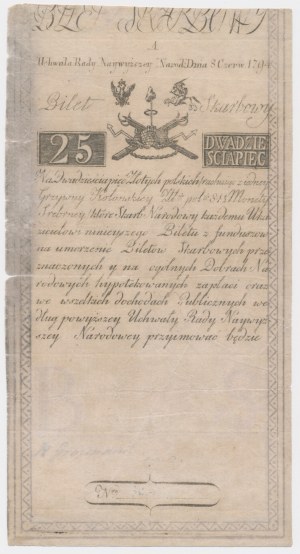 BILET SKARBOWY
A
Uchwała Rady Naywyższey Narod: Dnia 8 Czerw: 1794
Bilet Skarbowy
25 DWADZIE
SCIAPIĘC
Na Dwadzieściapięć Złotych polskich
Grzywny Kolonskiey Zł: pol: 84½ Monety
Srebrney które Skarb Narodowy każdemu
ninieyszego Biletu z funduszow
na umorzenie Biletow Skarbowych prze
znaczonych y na ogolnych Dobrach Na
rodowych hypotekowanych zapłaci oraz
we wszelkich dochodach Publicznych we
dług powyższey Uchwały Rady Naywyż
szey Narodowey przyimować będzie